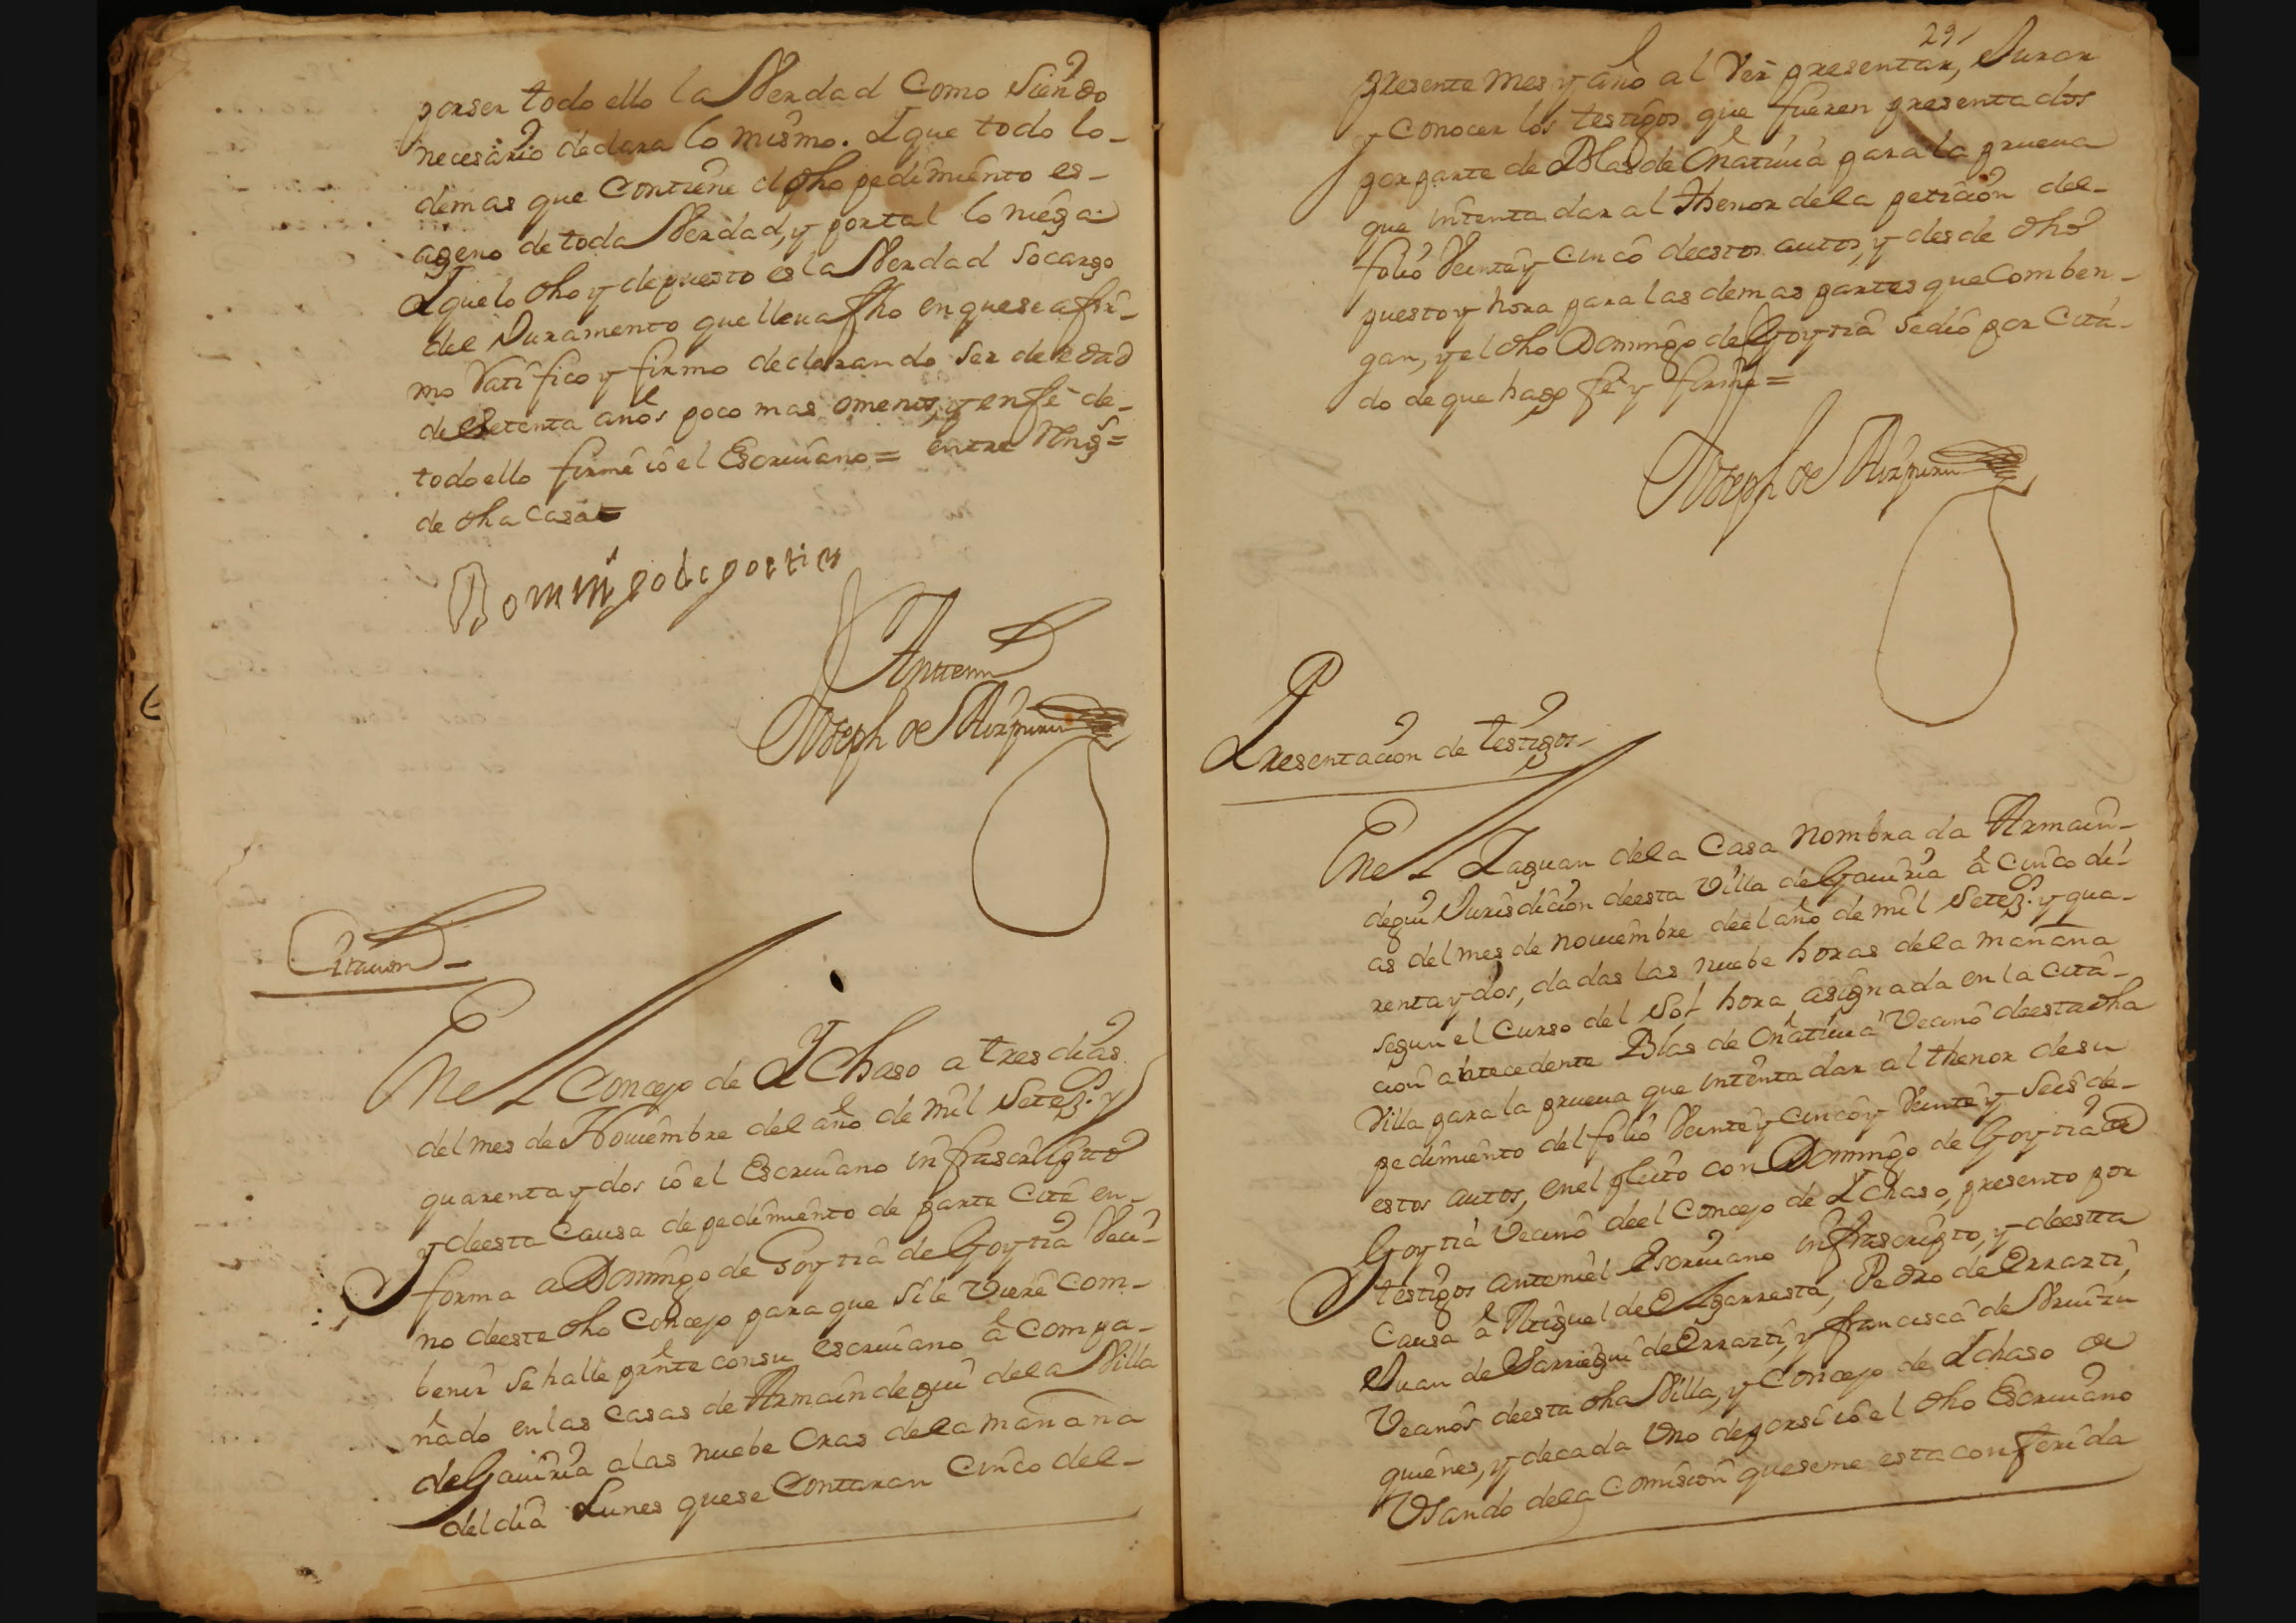 por ser todo ello la Verdad Como Siendo
necesario declara lo mismo. Y que todo lo-
demas que Contiene el dho pedimiento es-
ageno de toda Verdad, y por tal lo niega
Y que lo dho y depuesto es la Verdad Socargo
del Juramento que lleva fho en que se afir-
mo Ratifico y firmo declarando Ser de edad
de Setenta años poco mas omenos, y en fé de-
todo ello firmé io el Escriuano = entre Rngs =
de dha casa =
Domingo de goitia
Antemi
Joseph de Aizpuru
Citacion -
En el Concejo de Ichaso a tres dias
del mes de Nouiembre del año de mil Setez.s y
quarenta y dos io el Escriuano infrascripto
y deesta Causa de pedimiento de parte Cité en-
forma a Domingo de Goytia de Goytia Veci-
no deeste dho Concejo para que Si le Viere Com-
benir Se halle prnte con su escriuano á Compa-
ñado en las Casas de Armaindegui de la Villa
de Gauiria a las nuebe Oras de la mañana
del dia Lunes que se Contaran Cinco del-
29
presente mes y año al Ver presentar, Jurar
y Conocer los testigos que fueren presentados
por parte de Blas de Oñatiuia para la prueua
que intenta dar al Thenor de la peticion del-
folio Veinte y cinco de estos autos, y desde dho
puesto y hora para las demas partes que Comben-
gan, y el dho Domingo de Goytia Se dió por Cita-
do de que hago fé y firmé =
Joseph de Aizpuru
Presentacion de testigos -
En el Zaguan de la Casa nombrada Armain-
degui Jurisdicion deesta Villa de Gauiria á Cinco di-
as del mes de nouiembre deel año de mil Setez.s y qua-
renta y dos, dadas las nuebe horas de la mañana
segun el Curso del Sol hora asignada en la Cita-
cion antecedente Blas de Oñatiuia Vecino deesta dha
Villa para la prueua que intenta dar al thenor de su
pedimiento del folio Veinte y cinco y Veinte y Seis de-
estos autos, en el pleito con Domingo de Goytia de
Goytia Vecino deel Concejo de Ichaso, presento por
testigos antemi el Escriuano infrascripto, y deesta
Causa á Miguel de Elgarresta, Pedro de Errazti,
Juan de Sarriegui de Errazti, y francisca de
Vecinos deesta dha Villa, y Concejo de Ichaso de
quienes, y de cada Vno de por si io el dho Escriuano
Vsando de la Comision que se me esta conferida